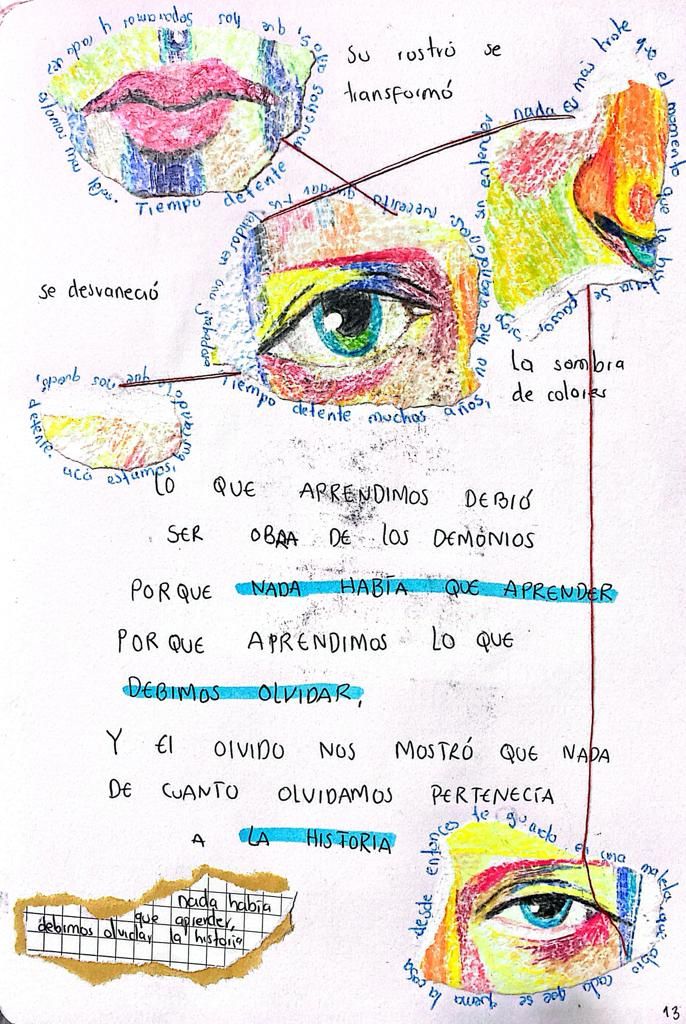 Su rostro se
transformó
solo sí, que nos separamos y cada vez
estamos más lejos. Tiempo detente muchos
nada es más triste que el momento que la historia se
puso, sigo sin entender
se desvaneció
Tiempo detente muchos años, no he
necesito
la sombra
de colores
que nos quedó,
Detente. acá estamos,
LO QUE APRENDIMOS DEBIÓ
SER OBRA DE LOS DEMONIOS
PORQUE NADA HABÍA QUE APRENDER
PORQUE APRENDIMOS LO QUE
DEBIMOS OLVIDAR,
Y El OlVIDO NOS MOSTRÓ QUE NADA
DE CUANTO OLVIDAMOS PERTENECÍA
A LA HISTORIA
nada había
que aprender,
debimos olvidar la historia
desde entonces te guardo en una maleta, que abro
cada que se quema la casa
13